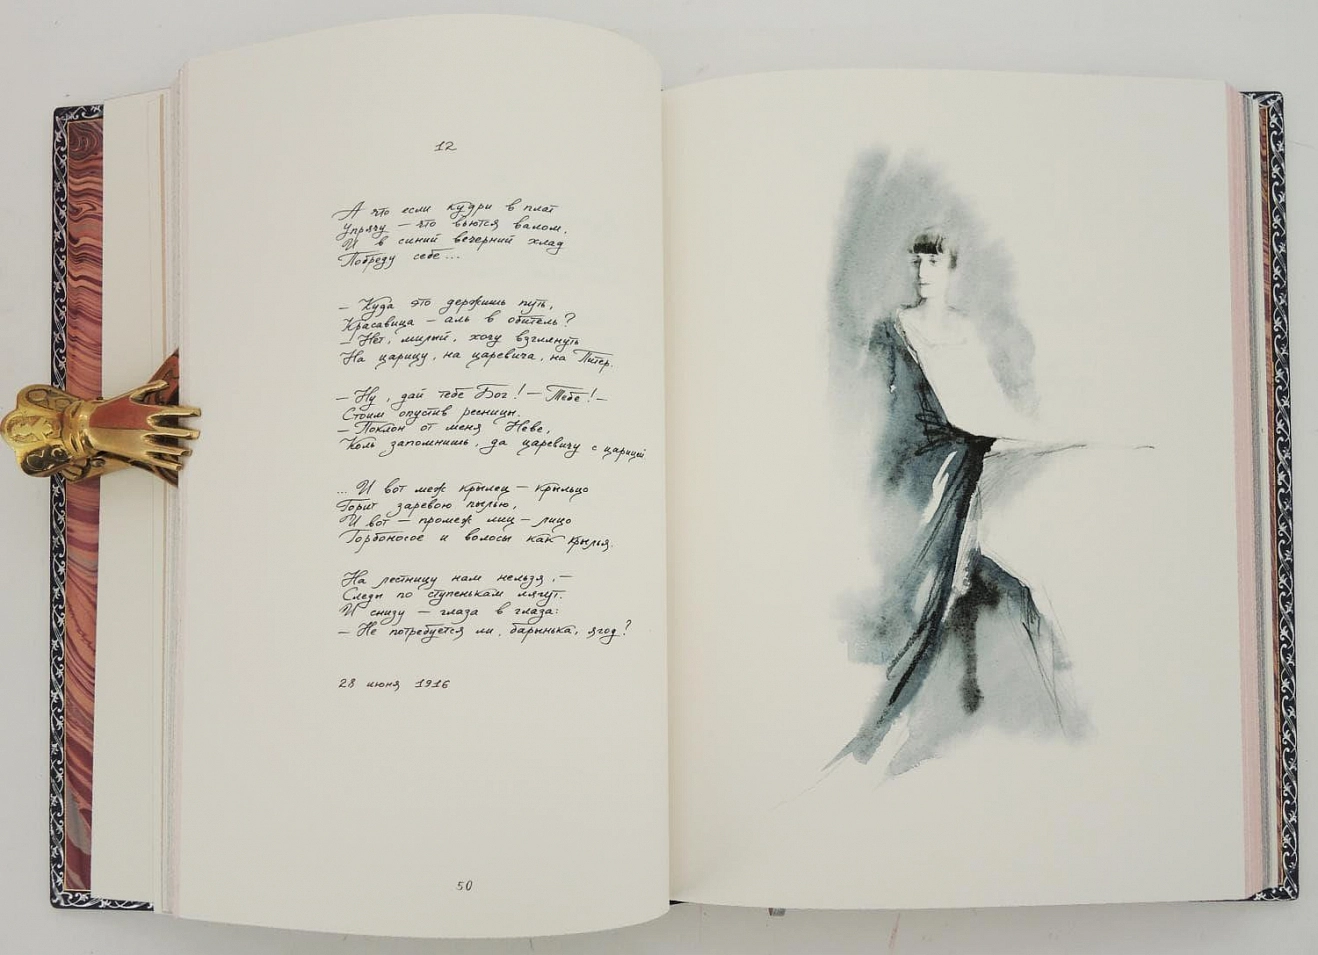 12
А что если кудри в плат
Упрячу — что вьются валом,
И в синий вечерний хлад
Побреду себе...
— Куда это держишь путь,
Красавица — аль в обитель?
— Нет, милый, хочу взглянуть
На царицу, на царевича, на Питер.
— Ну, дай тебе Бог! — Тебе! —
Стоим опустив ресницы.
— Поклон от меня Неве,
Коль запомнишь, да царевичу с царицей.
... И вот меж крылец — крыльцо
Горит заревою пылью,
И вот — промеж лиц — лицо
Горбоносое и волосы как крылья.
На лестницу нам нельзя, —
Следы по ступенькам лягут.
И снизу — глаза в глаза:
— Не потребуется ли, барынька, ягод?
28 июня 1916
50